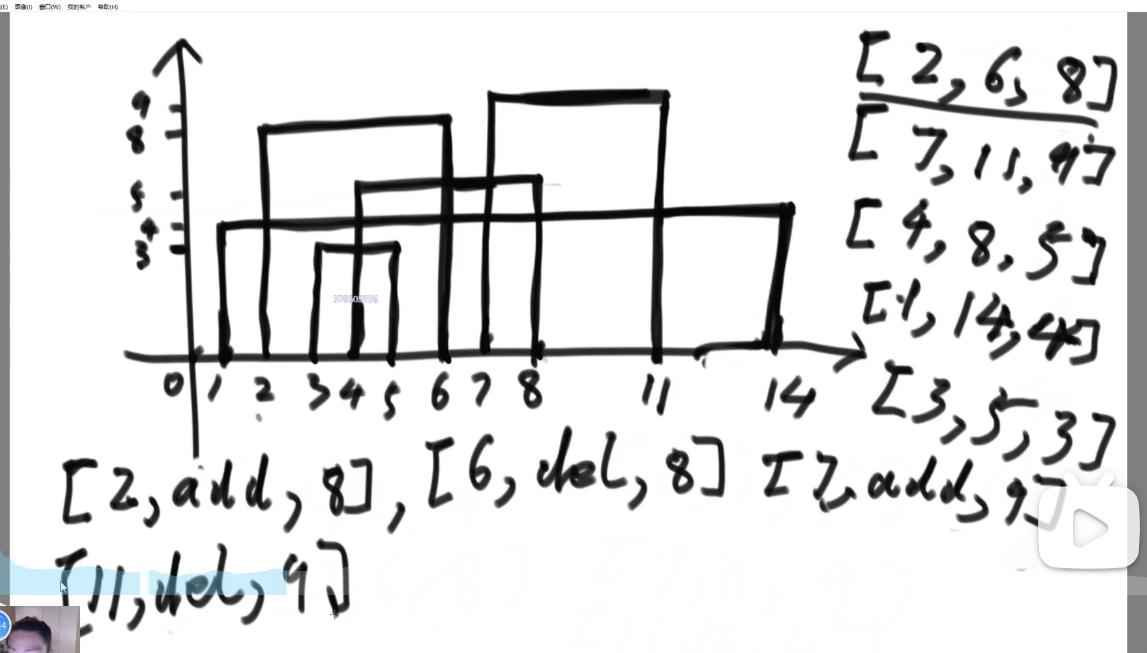 图像(I) 窗口(W) 我的帐户 帮助(H)
9
8
5
4
3
0 1 2 3 4 5 6 7 8 11 14
[2, 6, 8]
[7, 11, 9]
[4, 8, 5]
[1, 14, 4]
[3, 5, 3]
[2, add, 8], [6, del, 8] [7, add, 9]
[11, del, 9]